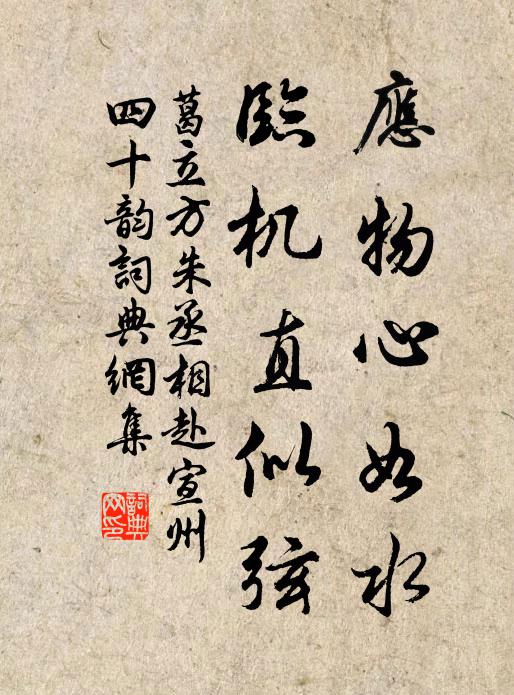 應物心如水
臨机直似弦
葛立方朱丞相赴宣州
四十韵詞典網集
詞典网印